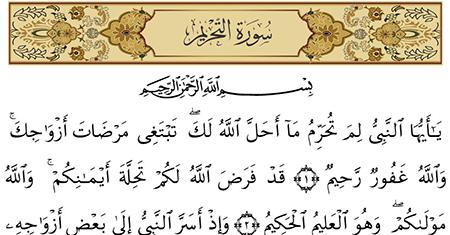 سُورَةُ التَّحْرِيمِ
بِسْمِ اللَّهِ الرَّحْمَٰنِ الرَّحِيمِ
يَـٰٓأَيُّهَا ٱلنَّبِىُّ لِمَ تُحَرِّمُ مَآ أَحَلَّ ٱللَّهُ لَكَ ۖ تَبْتَغِى مَرْضَاتَ أَزْوَٰجِكَ ۚ
وَٱللَّهُ غَفُورٌ رَّحِيمٌ ﴿١﴾ قَدْ فَرَضَ ٱللَّهُ لَكُمْ تَحِلَّةَ أَيْمَـٰنِكُمْ ۚ وَٱللَّهُ
مَوْلَىٰكُمْ ۖ وَهُوَ ٱلْعَلِيمُ ٱلْحَكِيمُ ﴿٢﴾ وَإِذْ أَسَرَّ ٱلنَّبِىُّ إِلَىٰ بَعْضِ أَزْوَٰجِهِۦ